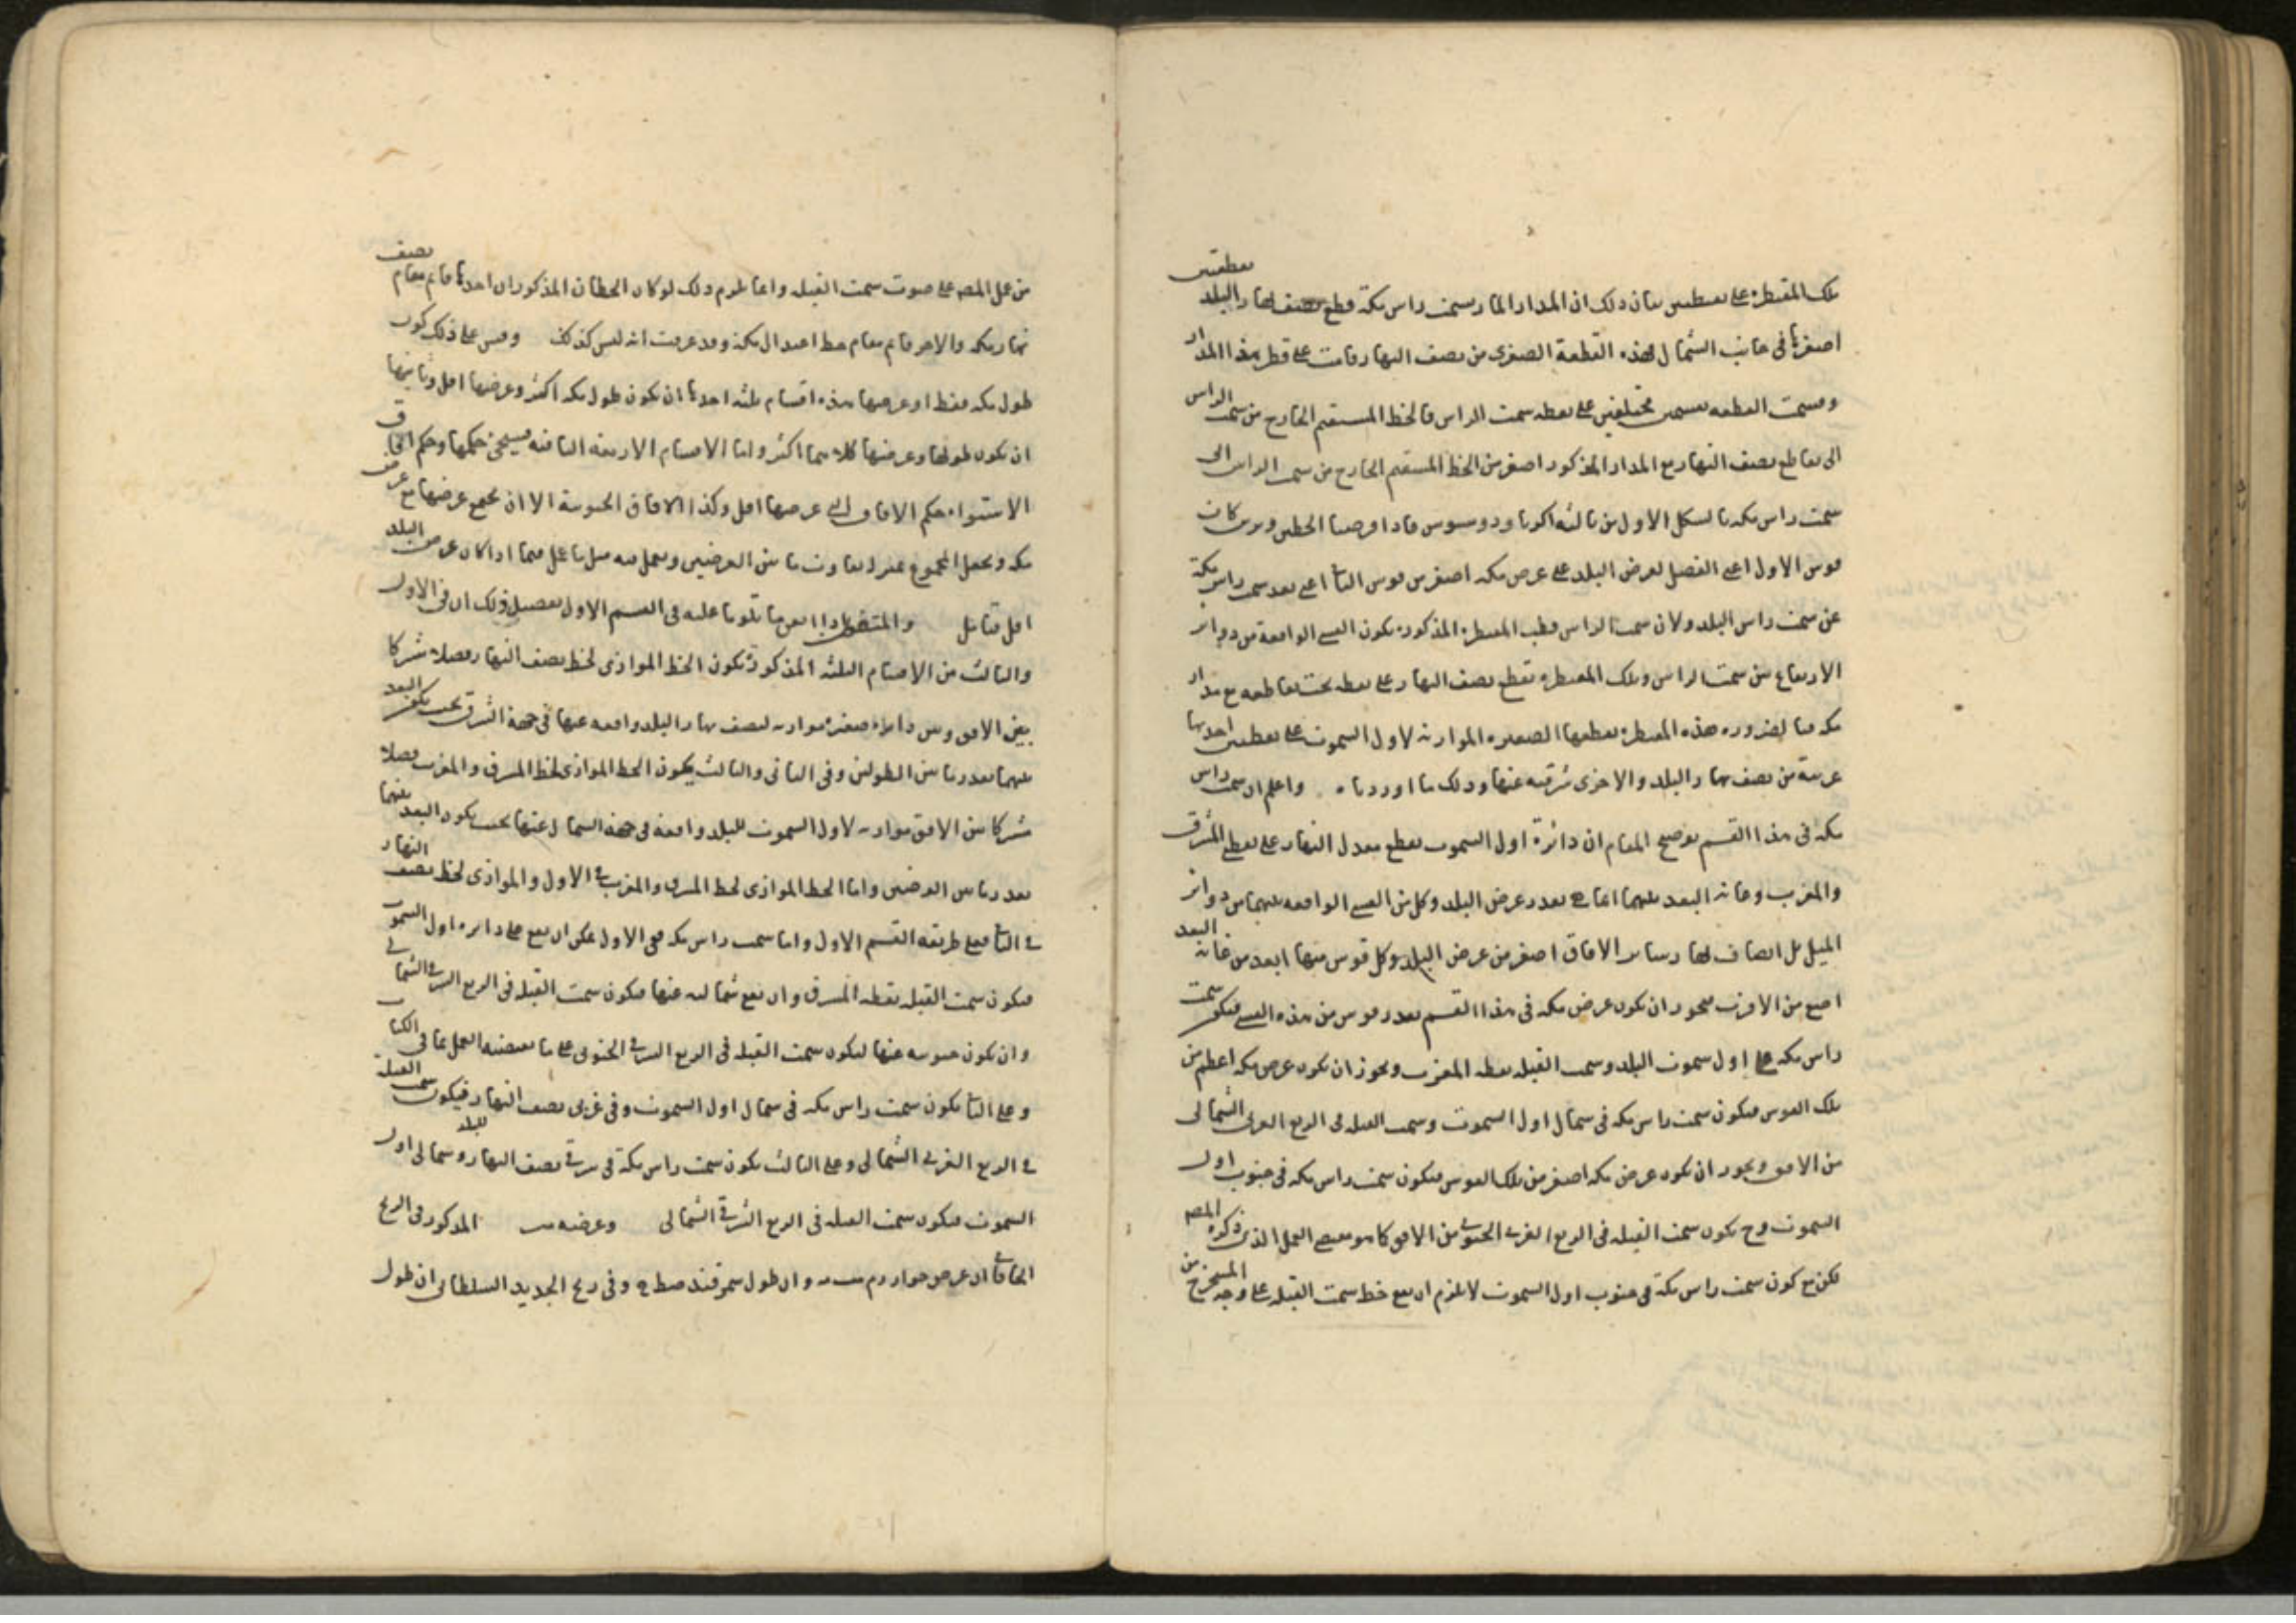 تلك المقنطرة على نقطتين بيان ذلك ان المدار المار بسمت راس مكة قطع نصف نهار البلد بقطعتين
اصغرهما في جانب الشمال فهذه القطعة الصغرى من نصف النهار قامت على قطر هذا المدار
وقسمت القطعة بقسمين مختلفين على نقطة سمت الراس فالخط المستقيم الخارج من سمت الراس
الى تقاطع نصف النهار مع المدار المذكور اصغر من الخط المستقيم الخارج من سمت الراس الى
سمت راس مكة بالشكل الاول من ثالثة اكر ثاودوسيوس فاذا فرضنا الخطين وترين كانت
قوس الاول اعني الفضل لعرض البلد على عرض مكة اصغر من قوس الثاني اعني بعد سمت راس مكة
عن سمت راس البلد ولان سمت الراس قطب المقنطرة المذكورة يكون القسي الواقعة من دوائر
الارتفاع بين سمت الراس وتلك المقنطرة تقطع نصف النهار على نقطة تحت تقاطعه مع مدار
مكة فبالضرورة هذه المقنطرة تقطعها الصغيرة الموازية لاول السموت على نقطتين احديهما
غربية من نصف نهار البلد والاخرى شرقية عنها وذلك ما اوردناه واعلم ان سمت راس
مكة في هذا القسم توضيح المقام ان دائرة اول السموت تقطع معدل النهار على نقطتي المشرق
والمغرب وغاية البعد بينهما انما هي بقدر عرض البلد وكل من القسي الواقعة بينهما من دوائر
الميل بل انصاف نهار ساير الافاق اصغر من عرض البلد وكل قوس منها ابعد من غاية البعد
اصغر من الاقرب فيجوز ان يكون عرض مكة في هذا القسم بقدر قوس من هذه القسي فيكون سمت
راس مكة على اول سموت البلد وسمت القبلة نقطة المغرب ويجوز ان يكون عرض مكة اعظم من
تلك القوس فيكون سمت راس مكة في شمال اول السموت وسمت القبلة في الربع الغربي الشمالي
من الافق ويجوز ان يكون عرض مكة اصغر من تلك القوس فيكون سمت راس مكة في جنوب اول
السموت وح يكون سمت القبلة في الربع الغربي الجنوبي من الافق كما هو مقتضى العمل الذي ذكره المصـ
لكن مع كون سمت راس مكة في جنوب اول السموت لا يلزم ان يقع خط سمت القبلة على وجه المستخرج من
من عمل المصـ على صوب سمت القبلة وانما يلزم ذلك لو كان الخطان المذكوران احدهما قائم مقام نصف
نهار مكة والاخر قائم مقام خط اعتدال مكة وقد عرفت انه ليس كذلك وقس على ذلك كون
طول مكة فقط او عرضها هذه اقسام ثلثة احدها ان يكون طول مكة اكثر وعرضها اقل وثانيها
ان يكون طولها وعرضها كلاهما اكثر واما الاقسام الاربعة الباقية فسيجئ حكمها وحكم افاق
الاستواء حكم الافاق التي عرضها اقل وكذا الافاق الجنوبية الا ان يجمع عرضها مع عرض
مكة ويجعل المجموع بمنزلة تفاوت ما بين العرضين ويعمل فيه مثل ما عمل فيما اذا كان عرض البلد
اقل فتامل والمتفطن اذا امعن ما تلونا عليه في القسم الاول تفصيل ذلك ان في الاول
والثالث من الاقسام الثلثة المذكورة يكون الخط الموازي لخط نصف النهار فصلا مشتركا
بين الافق وبين دائرة صغيرة موازية لنصف نهار البلد واقعة عنها في جهة الشرق بحيث يكون البعد
بينهما بقدر ما بين الطولين وفي الثاني والثالث يكون الخط الموازي لخط المشرق والمغرب فصلا
مشتركا بين الافق موازية لاول السموت للبلد واقعة في جهة الشمال عنها بحيث يكون البعد بينهما
بقدر ما بين العرضين واما الخط الموازي لخط المشرق والمغرب في الاول والموازي لخط نصف النهار
في الثاني فعلى طريقة القسم الاول واما سمت راس مكة ففي الاول يمكن ان يقع على دائرة اول السموت
فيكون سمت القبلة نقطة المشرق وان يقع شمالية عنها فيكون سمت القبلة في الربع الشرقي الشمالي
وان يكون جنوبية عنها ليكون سمت القبلة في الربع الشرقي الجنوبي على ما يقتضيه العمل بما في الكتاب
وعلى الثاني يكون سمت راس مكة في شمال اول السموت وفي غربي نصف النهار فيكون سمت القبلة
في الربع الغربي الشمالي وعلى الثالث يكون سمت راس مكة في شرقي نصف النهار وشمالي اول للبلد
السموت فيكون سمت القبلة في الربع الشرقي الشمالي وعرضه المذكور في الزيج
الخاقاني ان عرض خوارزم وان طول سمرقند صط وفي زيج الجديد السلطاني ان طول